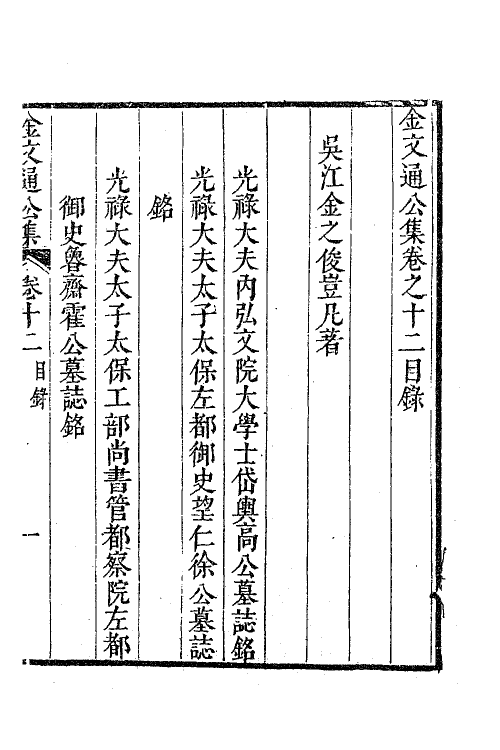 金文通公集卷之十二目錄
吳江金之俊豈凡著
光祿大夫內弘文院大學士岱輿高公墓誌銘
光祿大夫太子太保左都御史望仁徐公墓誌
銘
光祿大夫太子太保工部尚書管都察院左都
御史魯齋霍公墓誌銘
金文通公集 卷十二 目錄 一